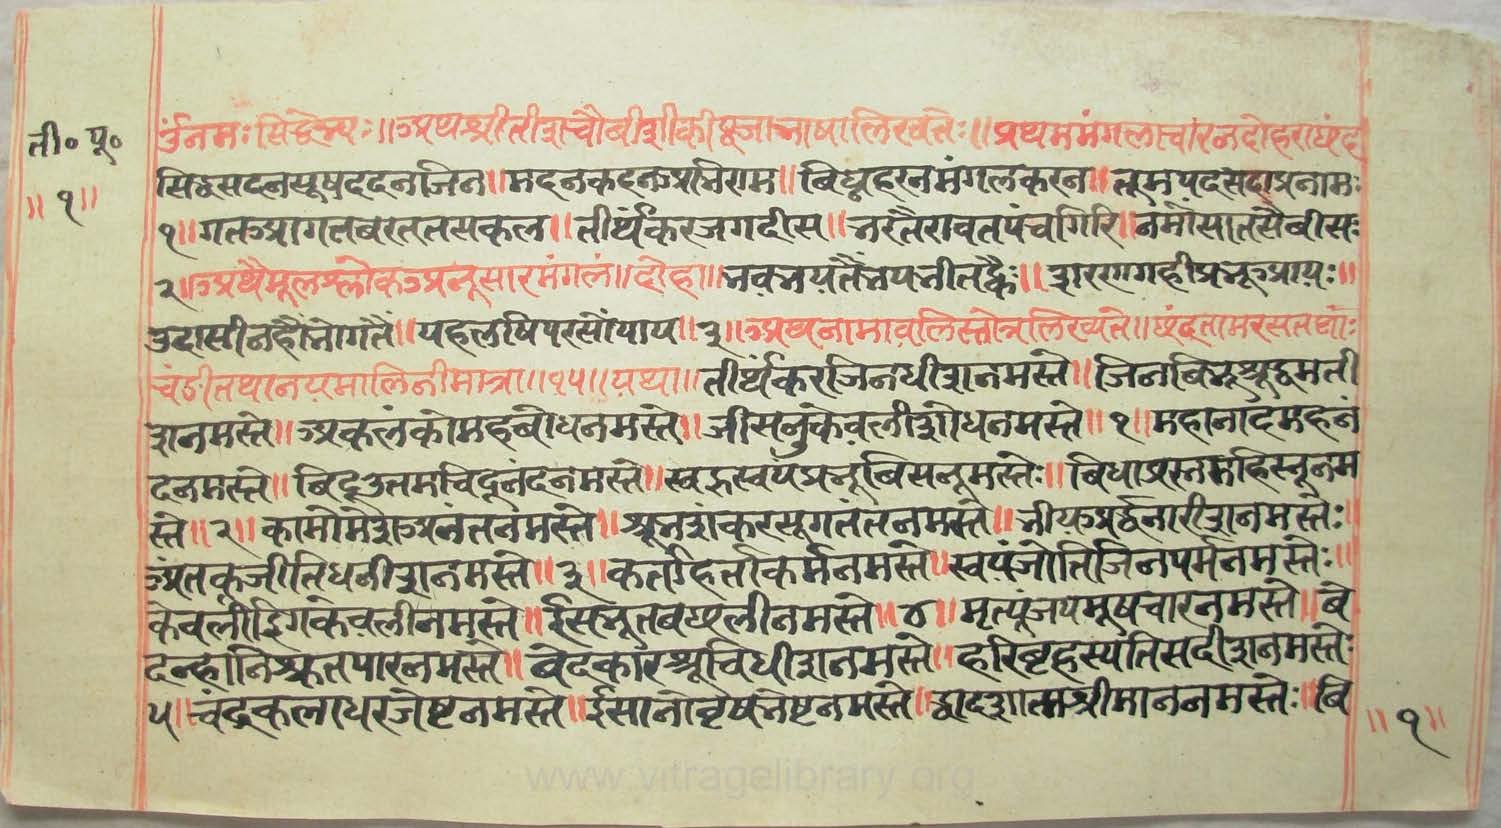 ती॰ पू॰
॥ १॥
ॐनमः सिद्धेभ्यः॥ अथ श्री तीश चौबीशी की पूजा भाषा लिख्यतेः॥ प्रथम मंगलाचारन दोहरा छंद
सिद्ध सदन सूषददन जिन॥ मदन कदन अभिराम॥ बिघ्न हरन मंगल करन॥ तूम पद सदा प्रनामः
१॥ गत आगत बरतत सकल॥ तीर्थंकर जगदीस॥ भरतैरावत पंच गिरि॥ नमौं सात सै बीसः
२॥ अथै मूल श्लोक अनूसार मंगलं॥ दोहा॥ भव भय तैं भयभीत ह्वैः॥ शरण गही प्रभू आयः॥
उदासीन हौं भोग तैं॥ यह लषि परसों पाय॥ ३॥ अथ नामावलि स्तोत्र लिख्यते॥ छंद तामरस तथाः
चंडी तथा नयमालिनी मात्रा॥ १५॥ यथा॥ तीर्थंकर जिनधीश नमस्ते॥ जिन बिभू श्रूद्धमती
श नमस्ते॥ अकलंको मह बोध नमस्ते॥ श्रुकेवलीशोध नमस्ते॥ १॥ महानाद महनं
द नमस्ते॥ बिदू उतम चिदूनंद नमस्ते॥ स्वयंप्रभू बिसनू नमस्तेः॥ नम
स्ते॥ २॥ कामोमेश अनंत नमस्ते॥ श्रूभ शंकर सूगतंत नमस्ते॥ अर्द्धनारीश नमस्तेः॥
अंतकृजीति धनीश नमस्ते॥ ३॥ कर्ता हर्ता कर्म नमस्ते॥ स्वयंजोति जिन पर्म नमस्तेः॥
केवली नमस्ते॥ नमस्ते॥ ४॥ मृत्यूंजय मूषचार नमस्ते॥ बे
नमस्ते॥ बेदकार श्रू विधीश नमस्ते॥ हरि बृहस्पति सदीश नमस्तेः
५॥ चंद्रकलाधर जेष्ट नमस्ते॥ नमस्ते॥ द्वादशात्म श्रीमान नमस्तेः॥ बि
॥ १॥
www.vitragelibrary.org